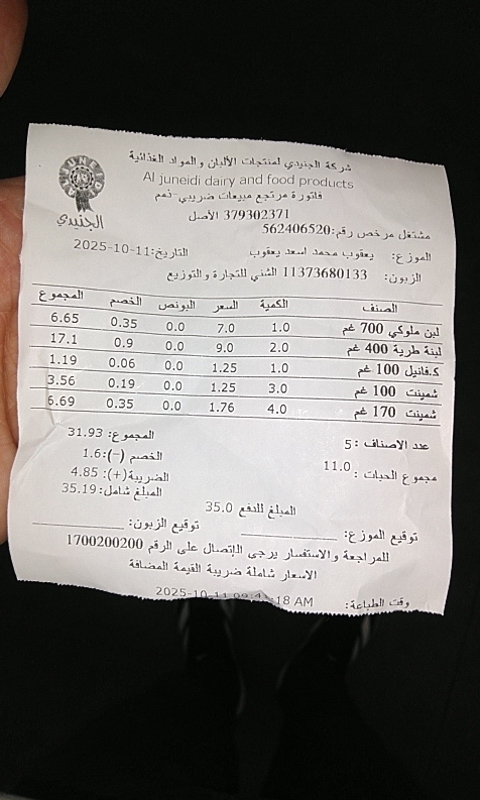 شركة الجنيدي لمنتجات الألبان والمواد الغذائية
Al juneidi dairy and food products
فاتورة مرتجع مبيعات ضريبي-ذمم
379302371 الأصل
مشتغل مرخص رقم:562406520
الجنيدي
الموزع: يعقوب محمد اسعد يعقوب التاريخ:2025-10-11
الزبون: 11373680133 الشني للتجارة والتوزيع
الصنف الكمية السعر البونص الخصم المجموع
لبن ملوكي 700 غم 1.0 7.0 0.0 0.35 6.65
لبنة طرية 400 غم 2.0 9.0 0.0 0.9 17.1
ك.فانيل 100 غم 1.0 1.25 0.0 0.06 1.19
شمينت 100 غم 3.0 1.25 0.0 0.19 3.56
شمينت 170 غم 4.0 1.76 0.0 0.35 6.69
عدد الاصناف :5 المجموع: 31.93
مجموع الحبات : 11.0 الخصم (-):1.6
الضريبة(+): 4.85
المبلغ شامل: 35.19
المبلغ للدفع 35.0
توقيع الموزع: توقيع الزبون:
للمراجعة والاستفسار يرجى الإتصال على الرقم 1700200200
الاسعار شاملة ضريبة القيمة المضافة
وقت الطباعة: 2025-10-11 09:4 18 AM